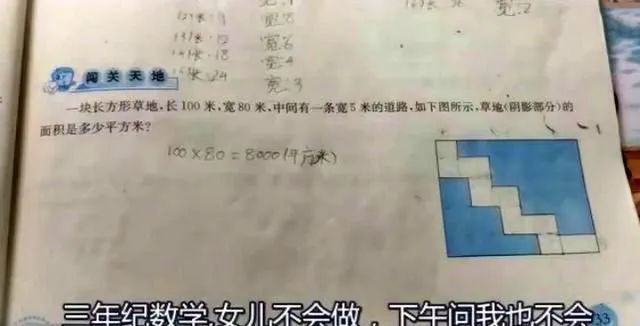 宽:8
宽:6
宽:4
宽:3
宽:2
闯关天地
一块长方形草地,长100米,宽80米,中间有一条宽5米的道路,如下图所示,草地(阴影部分)的
面积是多少平方米?
100×80=8000(平方米)
三年纪数学,女儿不会做,下午问我也不会
33